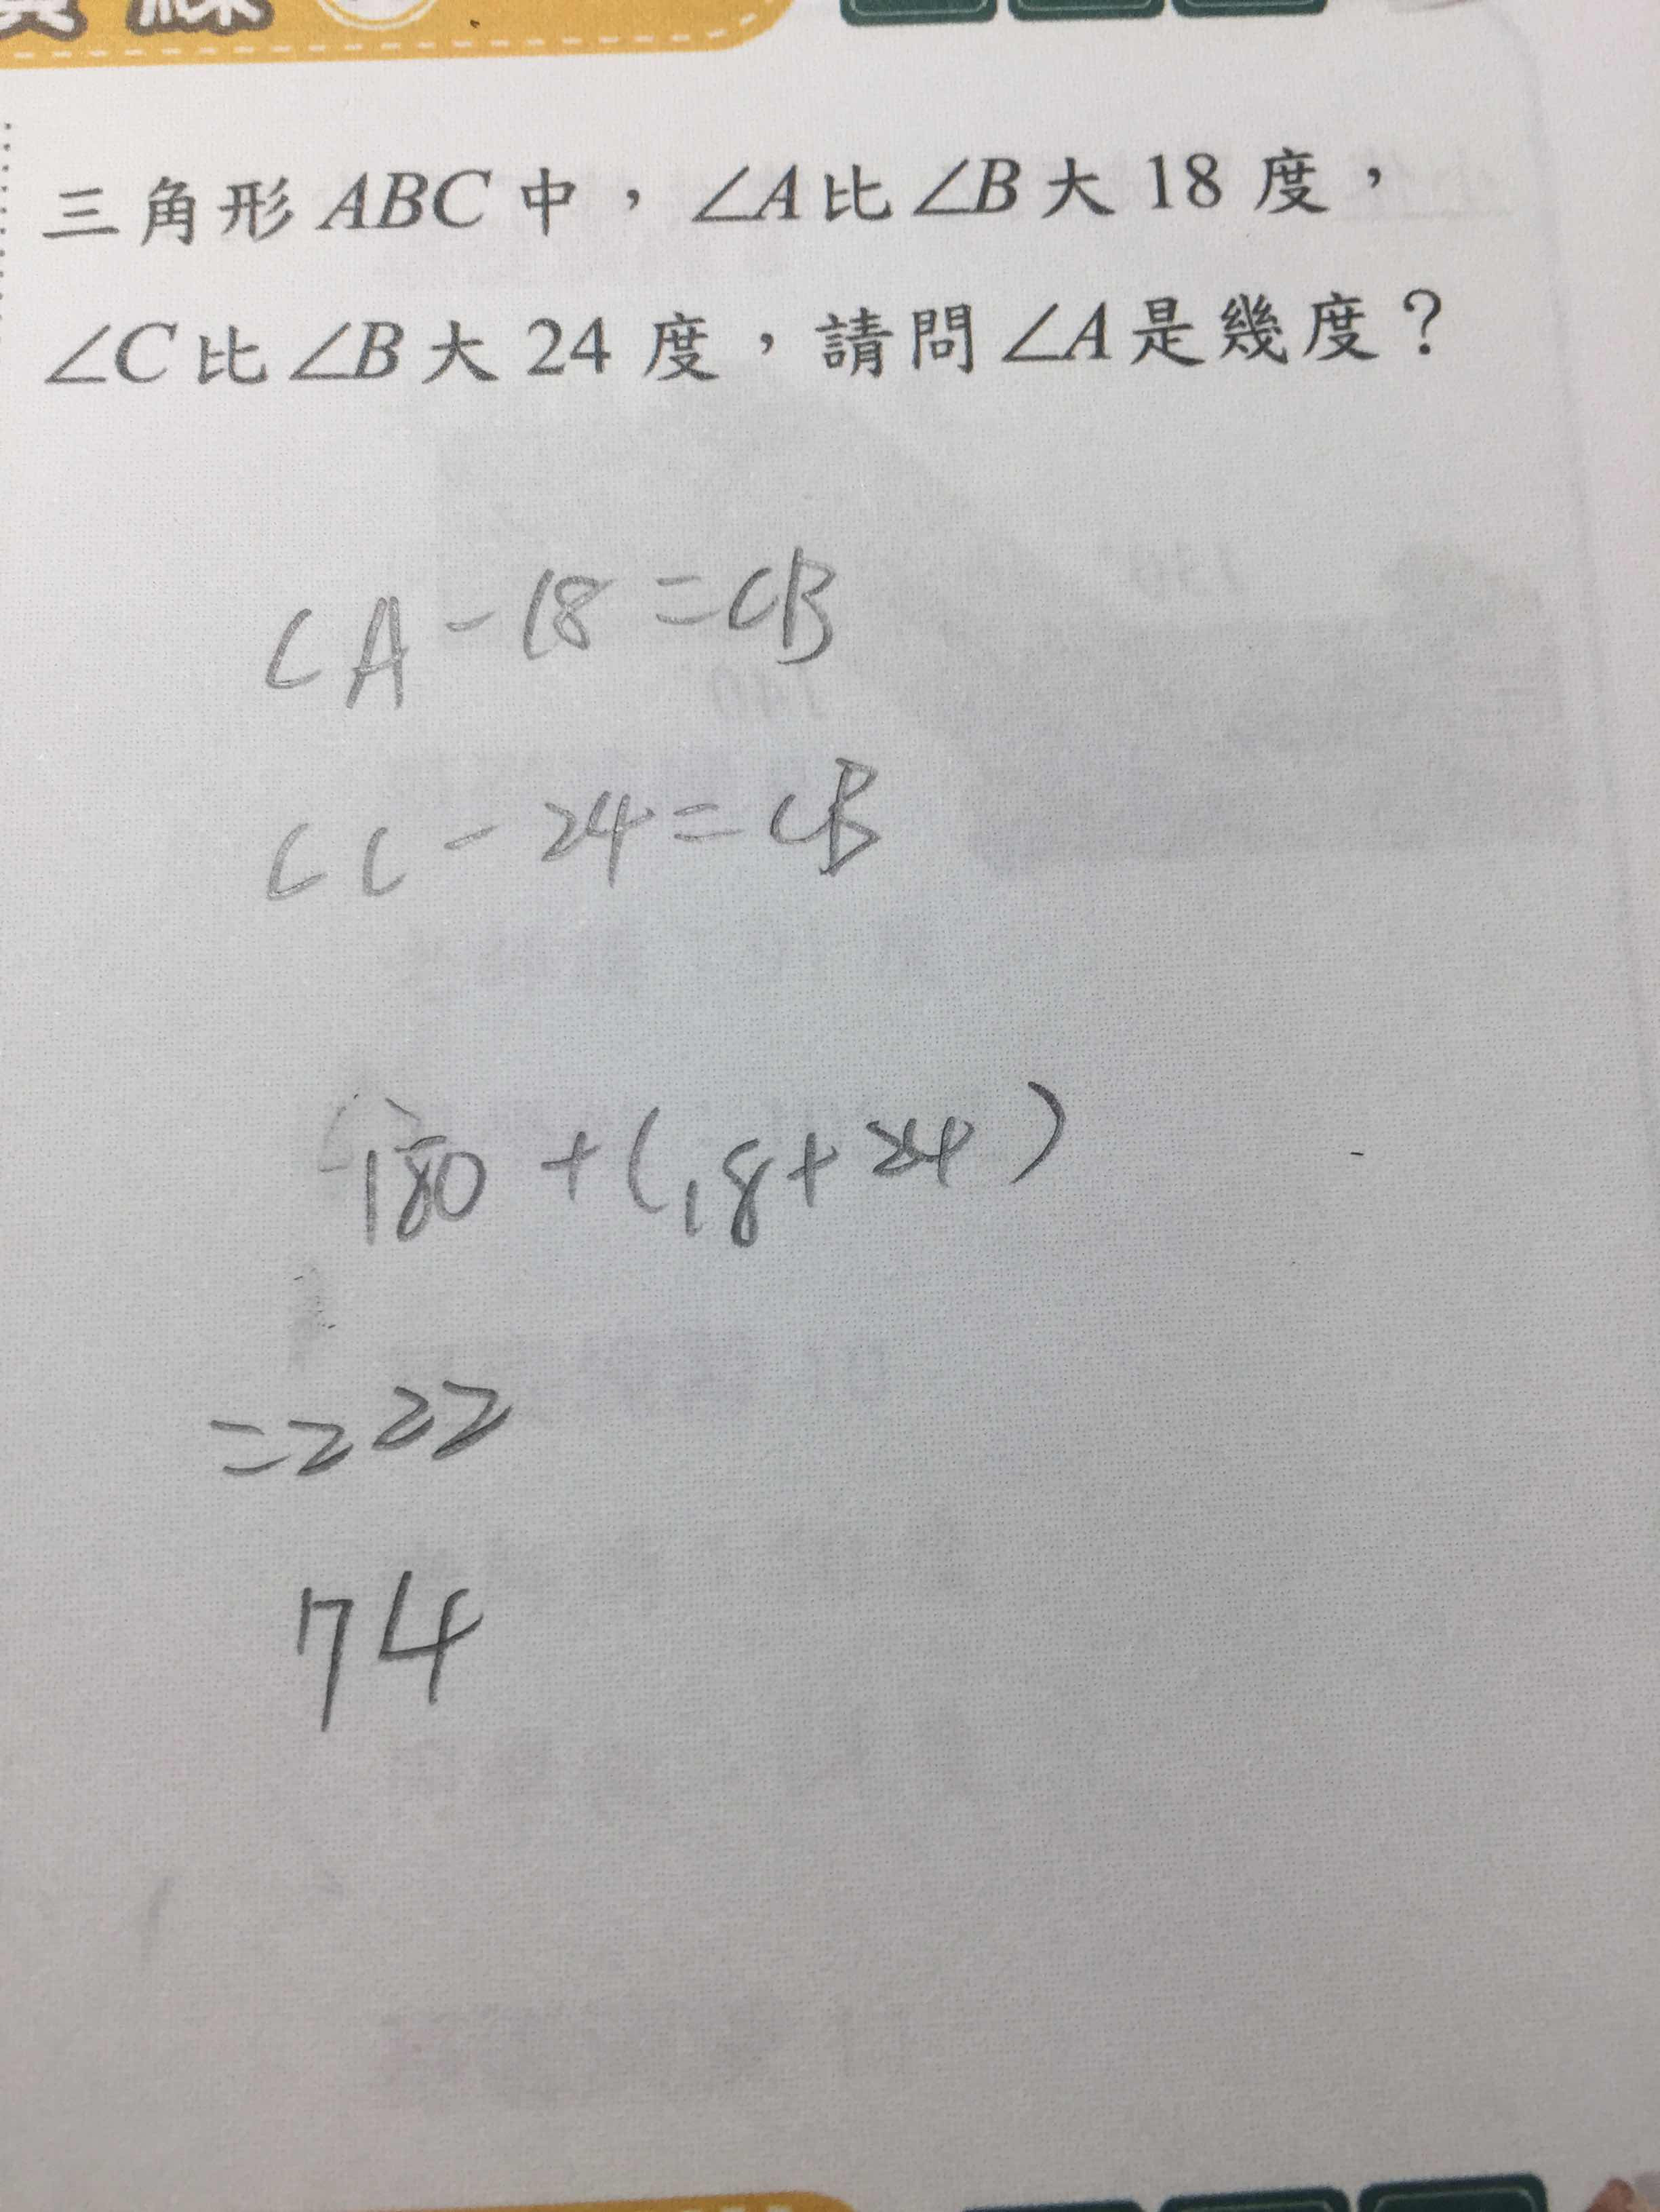 三角形 ABC 中，∠A 比 ∠B 大 18 度，
∠C 比 ∠B 大 24 度，請問 ∠A 是幾度？
∠A - 18 = ∠B
∠C - 24 = ∠B
180 + (18 + 24)
= 222
74